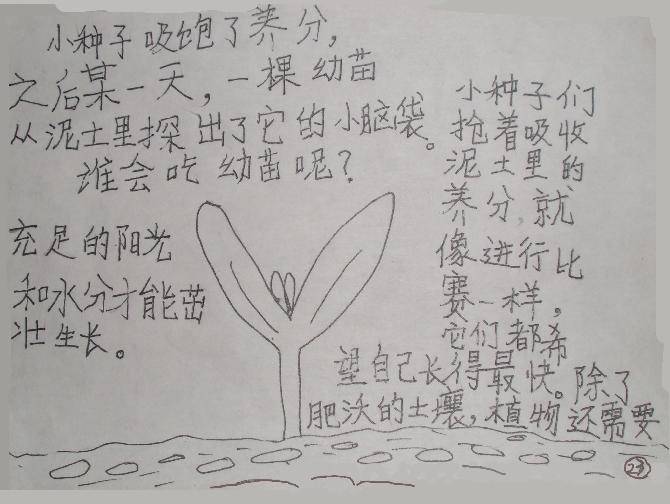 小种子吸饱了养分，
之后某一天，一棵幼苗
从泥土里探出了它的小脑袋。
谁会吃幼苗呢？
小种子们
抢着吸收
泥土里的
养分，就
像进行比
赛一样，
它们都希
望自己长得最快。除了
肥沃的土壤，植物还需要
充足的阳光
和水分才能茁
壮生长。
23